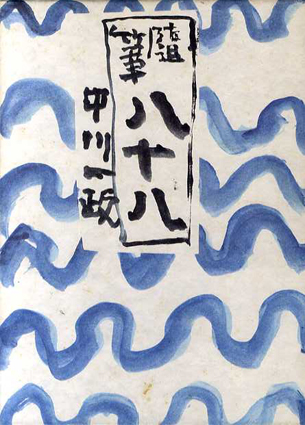 随筆
八十八
中川一政